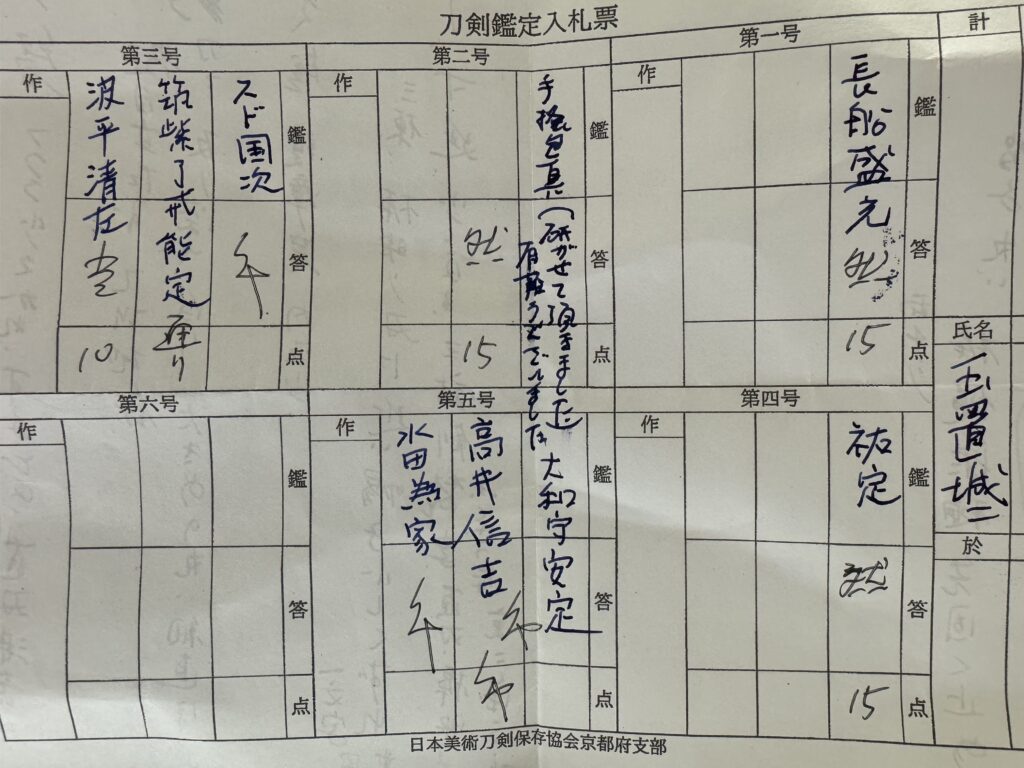 刀剣鑑定入札票
計
氏名
玉置城二
於
第一号
鑑
答
点
作
長船盛光
然
15
第二号
鑑
答
点
作
手掻包真(研がせて頂きました
然
15
第三号
鑑
答
点
作
スド国次
イヤ
筑紫了戒能定
通り
波平清左
10
第四号
鑑
答
点
作
祐定
然
15
第五号
鑑
答
点
作
大和守安定
高井信吉
水田為家
第六号
鑑
答
点
作
日本美術刀剣保存協会京都府支部